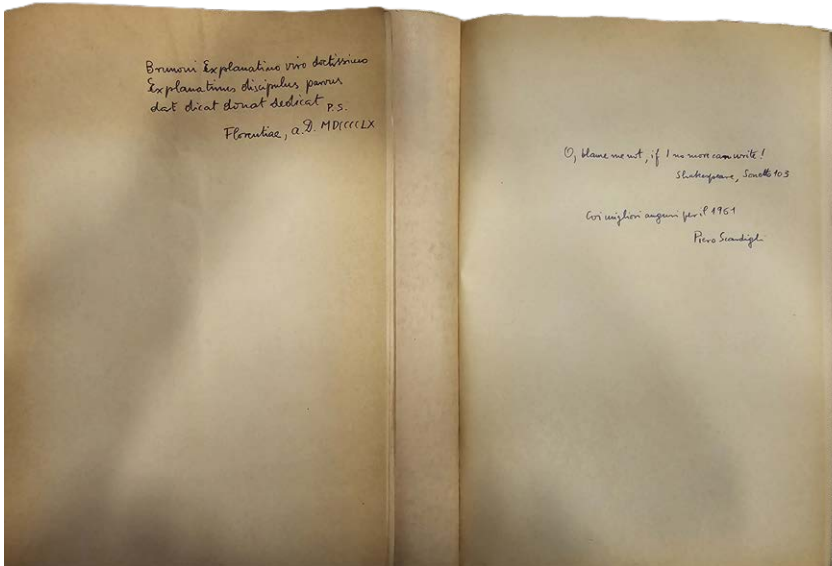 Brunoni Explanatino viro doctissimo
Explanatinus discipulus parvus
dat dicat donat dedicat P.S.
Florentiae, a.D. MDCCCCLX
O, blame me not, if I no more can write!
Shakespeare, Sonetto 103
Coi migliori auguri per il 1961
Piero Scardigli